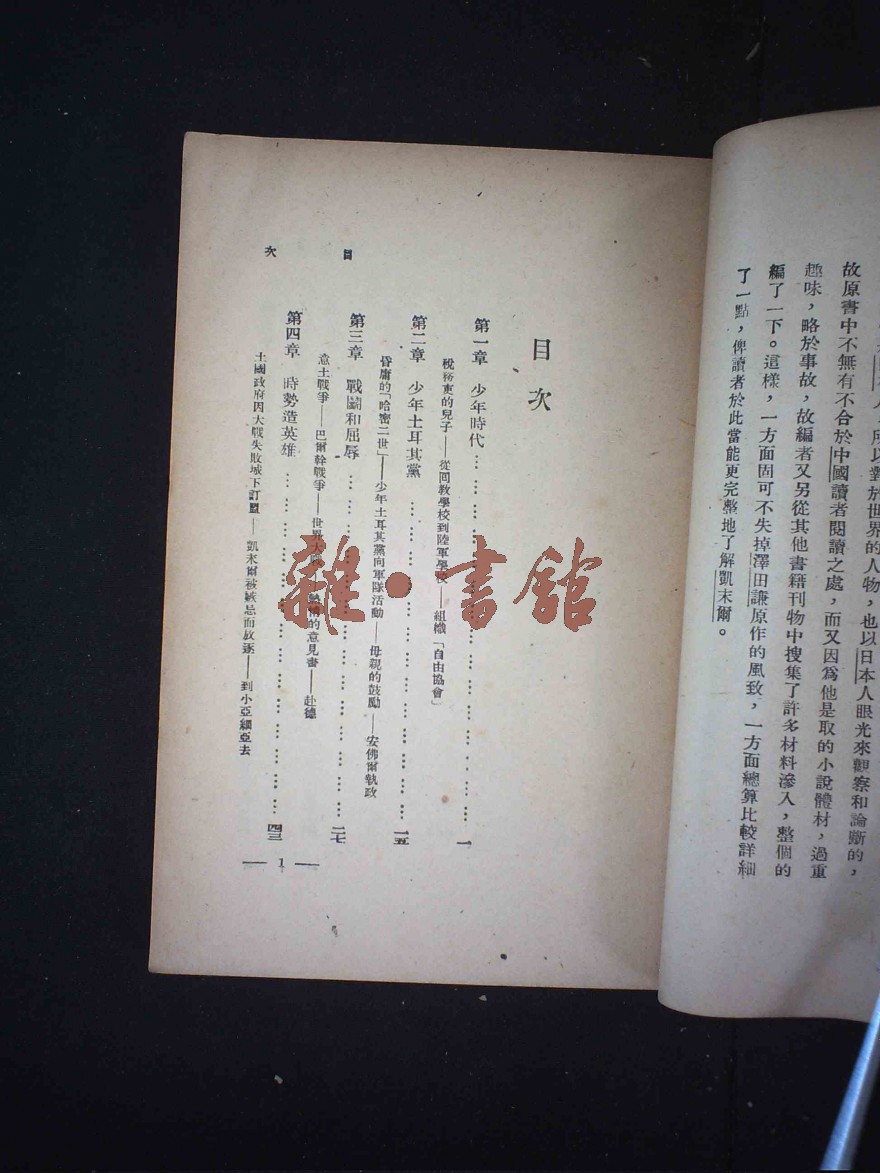 故原書中不無有不合於中國讀者閱讀之處，而又因爲他是取的小說體材，過重
趣味，略於事故，故編者又另從其他書籍刊物中搜集了許多材料滲入，整個的
編了一下。這樣，一方面固可不失掉澤田謙原作的風致，一方面總算比較詳細
了一點，俾讀者於此當能更完整地了解凱末爾。
人，所以對於世界的人物，也以日本人眼光來觀察和論斷的，
目次
第一章 少年時代…………………………一
稅務吏的兒子——從回教學校到陸軍學校——組織「自由協會」
第二章 少年土耳其黨…………………………一五
昏庸的「哈密二世」——少年土耳其黨向軍隊活動——母親的鼓勵——安佛爾執政
第三章 戰鬭和屈辱…………………………二七
意土戰爭——巴爾幹戰爭——世界大戰——熱情的意見書——赴德
第四章 時勢造英雄…………………………四三
土國政府因大戰失敗城下訂盟——凱末爾被嫉忌而放逐——到小亞細亞去
目次
— 1 —
雜·書館